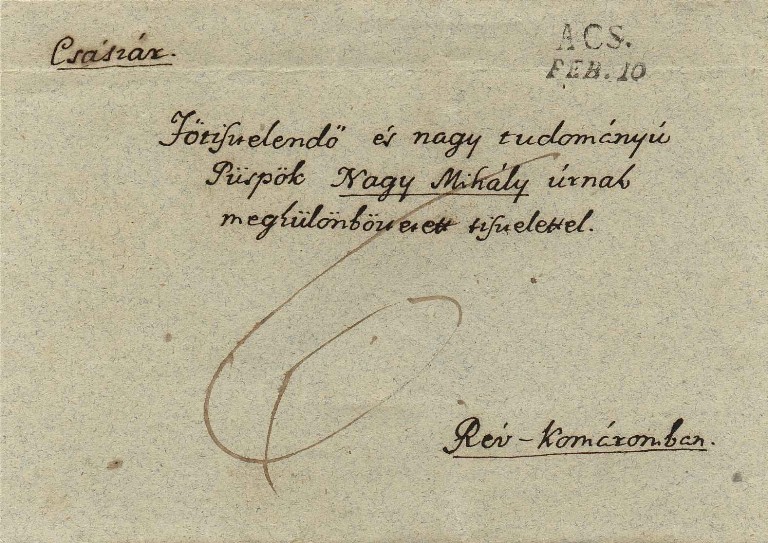 Császár.
ACS.
FEB. 10
Főtisztelendő és nagy tudományú
Püspök Nagy Mihály úrnak
megkülönböztetett tisztelettel.
6
Rév-Komáromban.